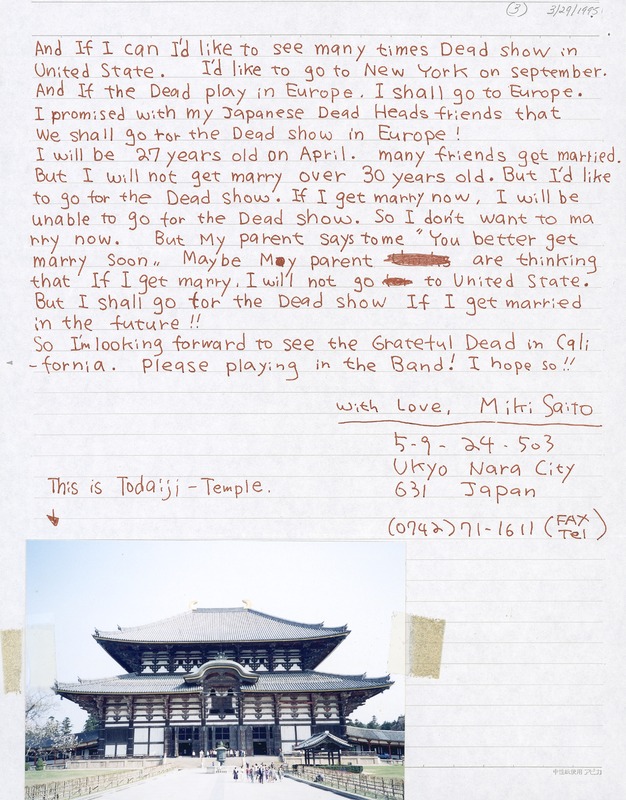 ③ 3/29/1995
And If I can I'd like to see many times Dead show in
United State. I'd like to go to New York on september.
And If the Dead play in Europe, I shall go to Europe.
I promised with my Japanese Dead Heads friends that
We shall go for the Dead show in Europe!
I will be 27 years old on April. many friends get married.
But I will not get marry over 30 years old. But I'd like
to go for the Dead show. If I get marry now, I will be
unable to go for the Dead show. So I don't want to ma
rry now. But My parent says to me "You better get
marry soon„ Maybe My parent are thinking
that If I get marry, I will not go to United State.
But I shall go for the Dead show If I get married
in the future!!
So I'm looking forward to see the Grateful Dead in Cali
-fornia. Please playing in the Band! I hope so!!
With Love, Miki Saito
5-9-24-503
Ukyo Nara City
631 Japan
(0742)71-1611 (FAX
Tel)
This is Todaiji-Temple.